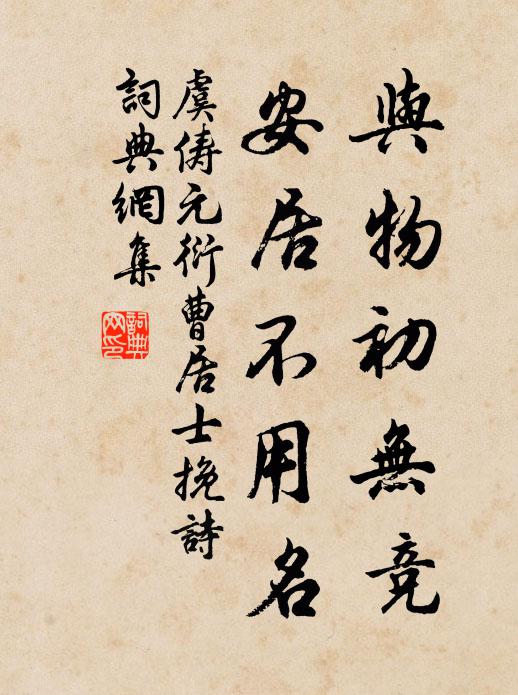 與物初無竞
安居不用名
虞俦元衍曹居士挽詩
詞典網集
詞典網印